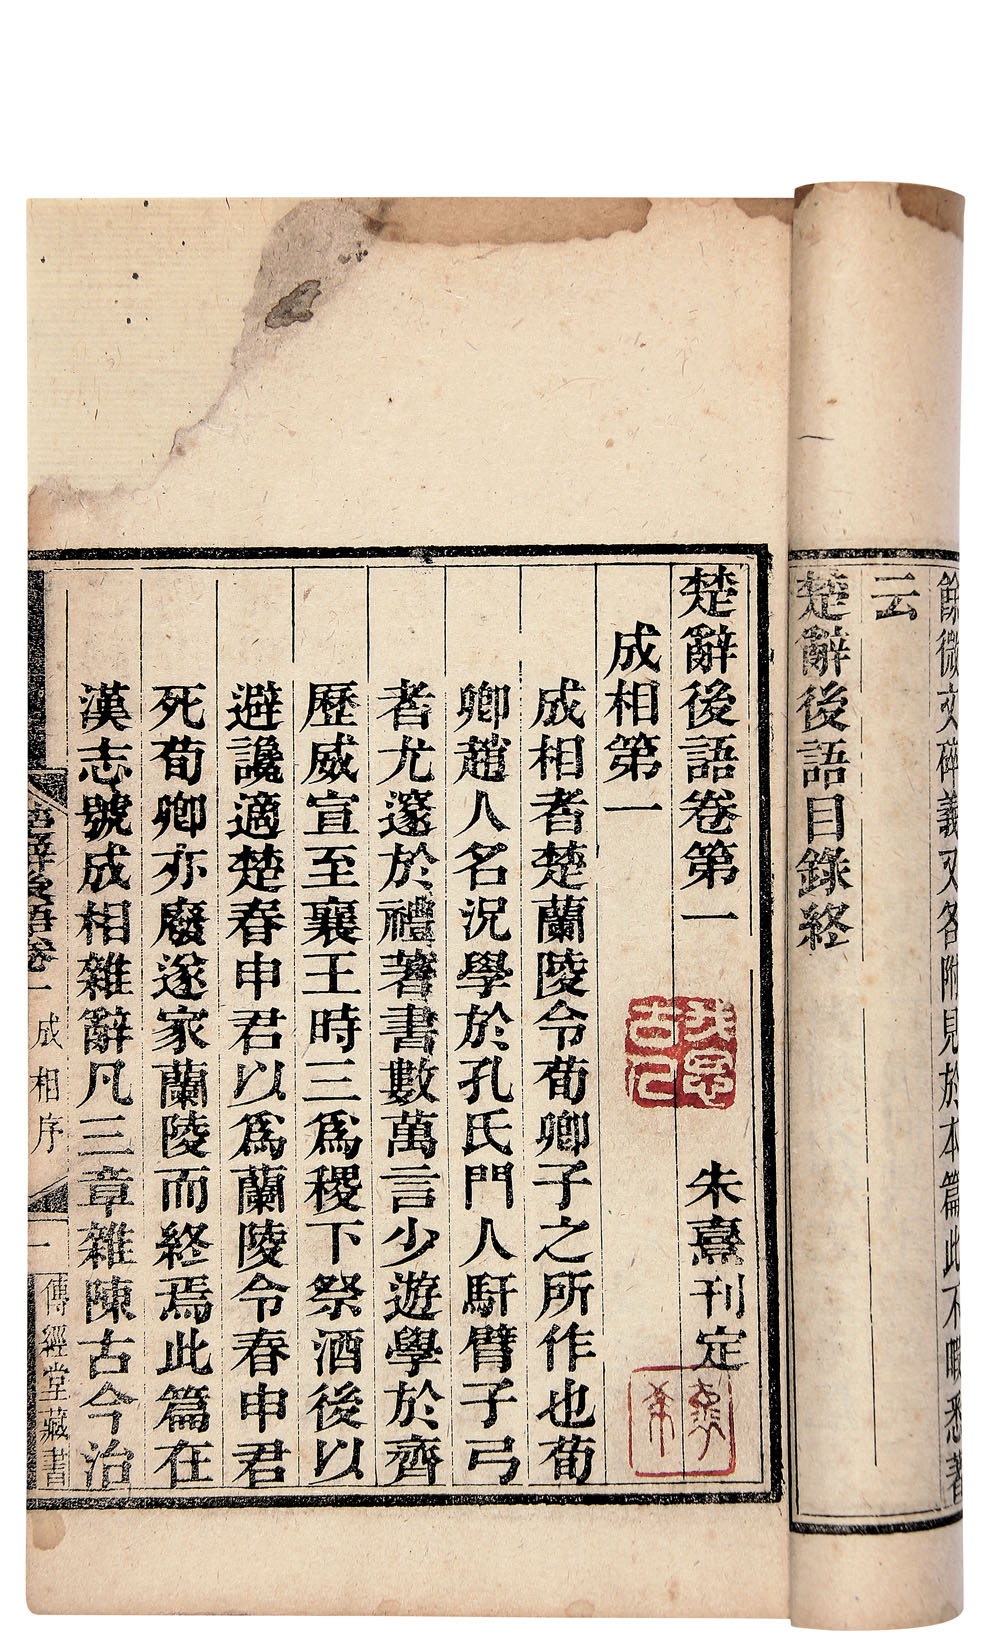 餘微文碎義又各附見於本篇此不暇悉著
云
楚辭後語目錄終
楚辭後語卷第一
朱熹刊定
成相第一
成相者楚蘭陵令荀卿子之所作也荀
卿趙人名況學於孔氏門人馯臂子弓
者尤邃於禮著書數萬言少遊學於齊
歷威宣至襄王時三為稷下祭酒後以
避讒適楚春申君以為蘭陵令春申君
死荀卿亦廢遂家蘭陵而終焉此篇在
漢志號成相雜辭凡三章雜陳古今治
楚辭後語卷一
成相序
一
傳經堂藏書
我思古人